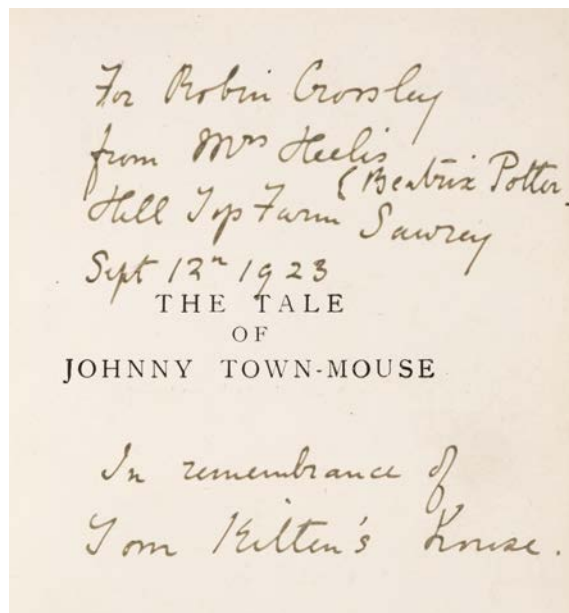 For Robin Crossley
from Mrs Heelis
(Beatrix Potter
Hill Top Farm Sawrey
Sept 12th 1923
THE TALE
OF
JOHNNY TOWN-MOUSE
In remembrance of
Tom Kitten's House.